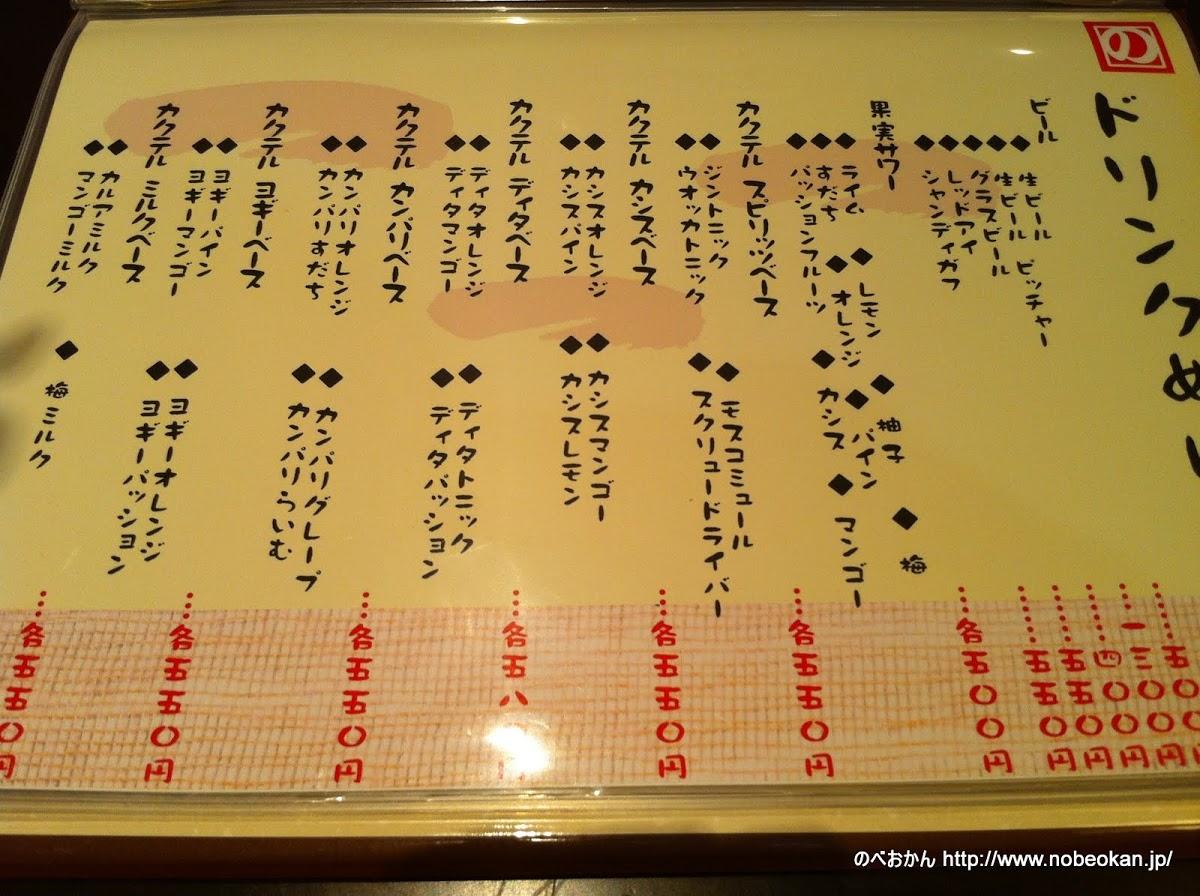 の
ドリンクめ
ビール
◆生ビール ……五〇〇円
◆生ビール ピッチャー ……一三〇〇円
◆グラスビール ……四〇〇円
◆レッドアイ ……五五〇円
◆シャンディガフ ……五五〇円
果実サワー
◆ライム ◆レモン ◆柚子 ◆梅
◆すだち ◆オレンジ ◆パイン
◆パッションフルーツ ◆カシス ◆マンゴー ……各五〇〇円
カクテル スピリッツベース
◆ジントニック ◆モスコミュール
◆ウオッカトニック ◆スクリュードライバー ……各五五〇円
カクテル カシスベース
◆カシスオレンジ ◆カシスマンゴー
◆カシスパイン ◆カシスレモン ……各五五〇円
カクテル ディタベース
◆ディタオレンジ ◆ディタトニック
◆ディタマンゴー ◆ディタパッション ……各五八 円
カクテル カンパリベース
◆カンパリオレンジ ◆カンパリグレープ
◆カンパリすだち ◆カンパリらいむ ……各五五〇円
カクテル ヨギーベース
◆ヨギーパイン ◆ヨギーオレンジ
◆ヨギーマンゴー ◆ヨギーパッション ……各五五〇円
カクテル ミルクベース
◆カルアミルク ◆梅ミルク
◆マンゴーミルク ……各五五〇円
のべおかん http://www.nobeokan.jp/